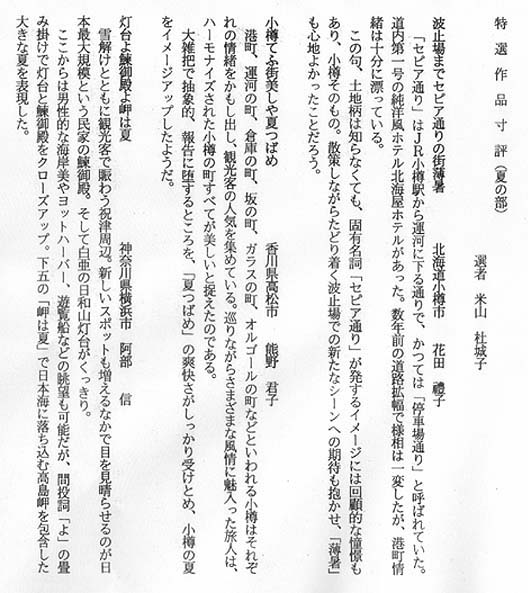 特選作品寸評(夏の部)
選者 米山 杜城子
波止場までセピア通りの街薄暑 北海道小樽市 花田 禮子
「セピア通り」はJR小樽駅から運河に下る通りで、かつては「停車場通り」と呼ばれていた。
道内第一号の純洋風ホテル北海屋ホテルがあった。数年前の道路拡幅で様相は一変したが、港町情
緒は十分に漂っている。
この句、土地柄は知らなくても、固有名詞「セピア通り」が発するイメージには回顧的な憧憬も
あり、小樽そのもの。散策しながらたどり着く波止場での新たなシーンへの期待も抱かせ、「薄暑」
も心地よかったことだろう。
小樽てふ街美しや夏つばめ 香川県高松市 熊野 君子
港町、運河の町、倉庫の町、坂の町、ガラスの町、オルゴールの町などといわれる小樽はそれぞ
れの情緒をかもし出し、観光客の人気を集めている。巡りながらさまざまな風情に魅入った旅人は、
ハーモナイズされた小樽の町すべてが美しいと捉えたのである。
大雑把で抽象的、報告に堕するところを、「夏つばめ」の爽快さがしっかり受けとめ、小樽の夏
をイメージアップしたようだ。
灯台よ鰊御殿よ岬は夏 神奈川県横浜市 阿部 信
雪解けとともに観光客で賑わう祝津周辺。新しいスポットも増えるなかで目を見晴らせるのが日
本最大規模という民家の鰊御殿。そして白亜の日和山灯台がくっきり。
ここからは男性的な海岸美やヨットハーバー、遊覧船などの眺望も可能だが、間投詞「よ」の畳
み掛けで灯台と鰊御殿をクローズアップ。下五の「岬は夏」で日本海に落ち込む高島岬を包含した
大きな夏を表現した。